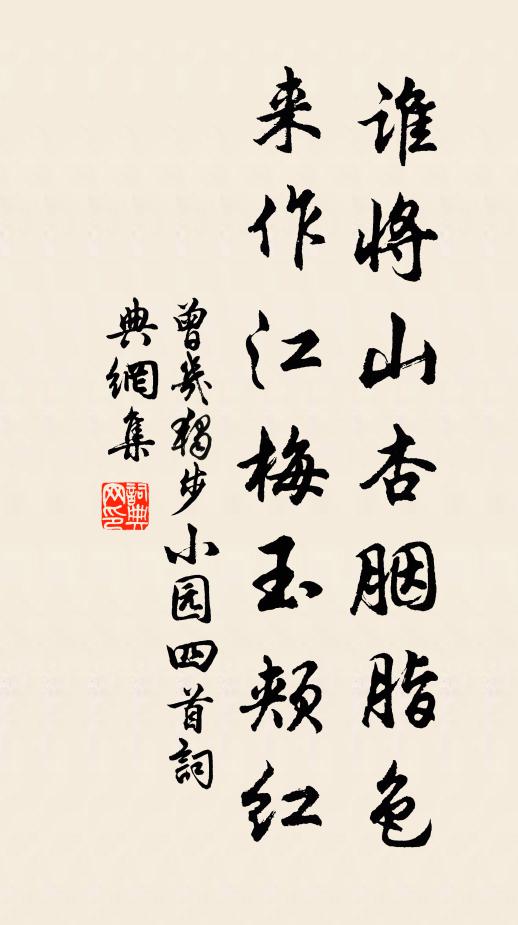 谁将山杏胭脂色
来作江梅玉颊红
曾几独步小园四首詞
典網集
詞典网印